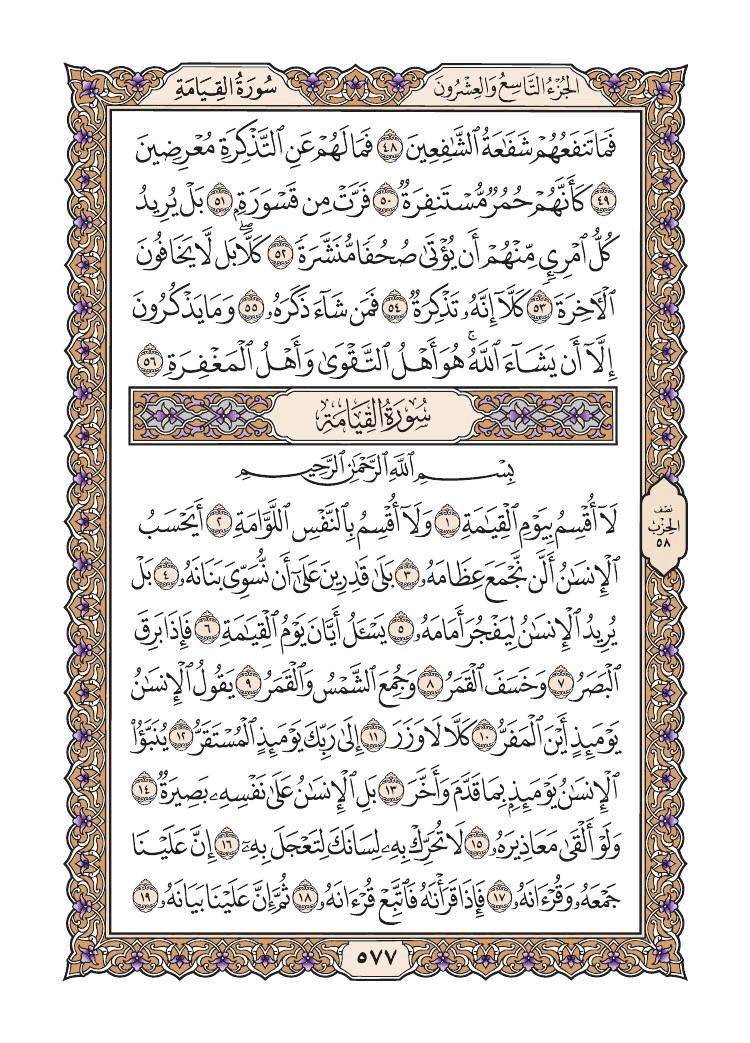 الجُزْءُ التَّاسِعُ وَالعِشْرُونَ
سُورَةُ القِيَامَةِ
فَمَا تَنفَعُهُمْ شَفَٰعَةُ ٱلشَّٰفِعِينَ ٤٨ فَمَا لَهُمْ عَنِ ٱلتَّذْكِرَةِ مُعْرِضِينَ
٤٩ كَأَنَّهُمْ حُمُرٌ مُّسْتَنفِرَةٌ ٥٠ فَرَّتْ مِن قَسْوَرَةٍۭ ٥١ بَلْ يُرِيدُ
كُلُّ ٱمْرِئٍ مِّنْهُمْ أَن يُؤْتَىٰ صُحُفًا مُّنَشَّرَةً ٥٢ كَلَّاۖ بَل لَّا يَخَافُونَ
ٱلْأَخِرَةَ ٥٣ كَلَّآ إِنَّهُۥ تَذْكِرَةٌ ٥٤ فَمَن شَآءَ ذَكَرَهُۥ ٥٥ وَمَا يَذْكُرُونَ
إِلَّآ أَن يَشَآءَ ٱللَّهُۚ هُوَ أَهْلُ ٱلتَّقْوَىٰ وَأَهْلُ ٱلْمَغْفِرَةِ ٥٦
سُورَةُ القِيَامَةِ
بِسْمِ ٱللَّهِ ٱلرَّحْمَٰنِ ٱلرَّحِيمِ
لَآ أُقْسِمُ بِيَوْمِ ٱلْقِيَٰمَةِ ١ وَلَآ أُقْسِمُ بِٱلنَّفْسِ ٱللَّوَّامَةِ ٢ أَيَحْسَبُ
ٱلْإِنسَٰنُ أَلَّن نَّجْمَعَ عِظَامَهُۥ ٣ بَلَىٰ قَٰدِرِينَ عَلَىٰٓ أَن نُّسَوِّيَ بَنَانَهُۥ ٤ بَلْ
يُرِيدُ ٱلْإِنسَٰنُ لِيَفْجُرَ أَمَامَهُۥ ٥ يَسْـَٔلُ أَيَّانَ يَوْمُ ٱلْقِيَٰمَةِ ٦ فَإِذَا بَرِقَ
ٱلْبَصَرُ ٧ وَخَسَفَ ٱلْقَمَرُ ٨ وَجُمِعَ ٱلشَّمْسُ وَٱلْقَمَرُ ٩ يَقُولُ ٱلْإِنسَٰنُ
يَوْمَئِذٍ أَيْنَ ٱلْمَفَرُّ ١٠ كَلَّا لَا وَزَرَ ١١ إِلَىٰ رَبِّكَ يَوْمَئِذٍ ٱلْمُسْتَقَرُّ ١٢ يُنَبَّؤُاْ
ٱلْإِنسَٰنُ يَوْمَئِذٍۭ بِمَا قَدَّمَ وَأَخَّرَ ١٣ بَلِ ٱلْإِنسَٰنُ عَلَىٰ نَفْسِهِۦ بَصِيرَةٌ ١٤
وَلَوْ أَلْقَىٰ مَعَاذِيرَهُۥ ١٥ لَا تُحَرِّكْ بِهِۦ لِسَانَكَ لِتَعْجَلَ بِهِۦٓ ١٦ إِنَّ عَلَيْنَا
جَمْعَهُۥ وَقُرْءَانَهُۥ ١٧ فَإِذَا قَرَأْنَٰهُ فَٱتَّبِعْ قُرْءَانَهُۥ ١٨ ثُمَّ إِنَّ عَلَيْنَا بَيَانَهُۥ ١٩
نصف
الحزب
٥٨
٥٧٧